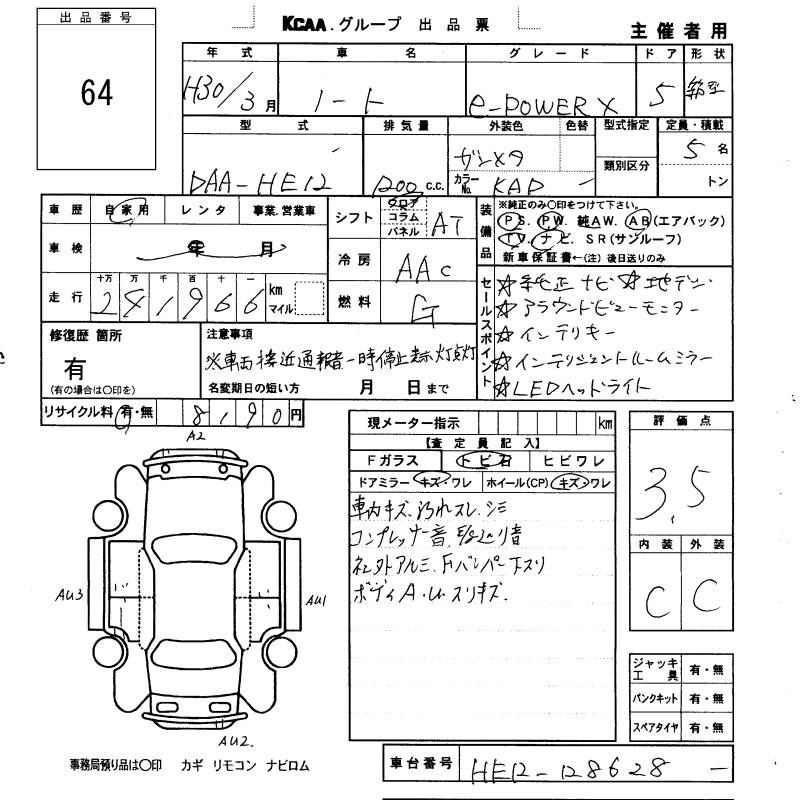 出品番号
64
KCAA.グループ 出品票
主催者用
年式 車名 グレード ドア 形状
H30/3月 ノート e-POWER X 5 箱型
型式 排気量 外装色 色替 型式指定 定員・積載
DAA-HE12 1200c.c. ガンメタ 5名
カラーNo. KAD - 類別区分 トン
車歴 自家用 レンタ 事業.営業車
シフト フロア コラム パネル AT
装備品 ※純正のみ〇印をつけて下さい。
PS. PW. 純AW. AB(エアバック)
TV. ナビ. SR(サンルーフ)
新車保証書←(注) 後日送りのみ
車検 年 月
冷房 AAC
走行 十万 万 千 百 十 一
241966 km マイル
燃料 G
セールスポイント
☆純正ナビ☆地デジ
☆アラウンドビューモニター
☆インテリキー
☆インテリジェントルームミラー
☆LEDヘッドライト
修復歴 箇所
有
(有の場合は〇印を)
注意事項
※車両接近通報音一時停止表示灯点灯
名変期日の短い方 月 日まで
リサイクル料 有・無 8190円
現メーター指示 km
【査定員記入】
Fガラス トビ石 ヒビワレ
ドアミラー キズ・ワレ ホイール(CP) キズ・ワレ
車内キズ.汚れスレ.シミ
コンプレッサー音.E/gうなり音
社外アルミ.Fバンパー下スリ
ボディA.U.スリキズ.
評価点
3.5
内装 外装
C C
A2
AU3
AU1
AU2.
ジャッキ工具 有・無
パンクキット 有・無
スペアタイヤ 有・無
事務局預り品は〇印 カギ リモコン ナビロム
車台番号 HE12-128628 -